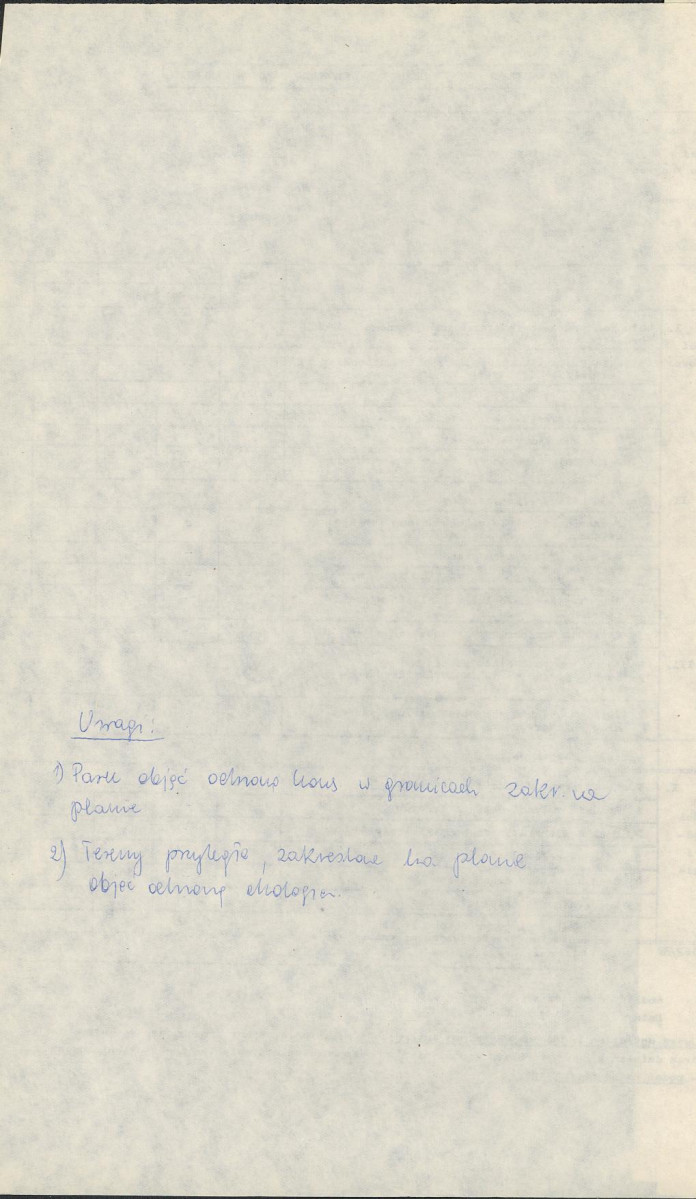 Uwagi:
1) Park objąć ochroną kons w granicach zakr. na
planie
2) Tereny przyległe, zakreślone na planie
objąć ochroną ekologicz.